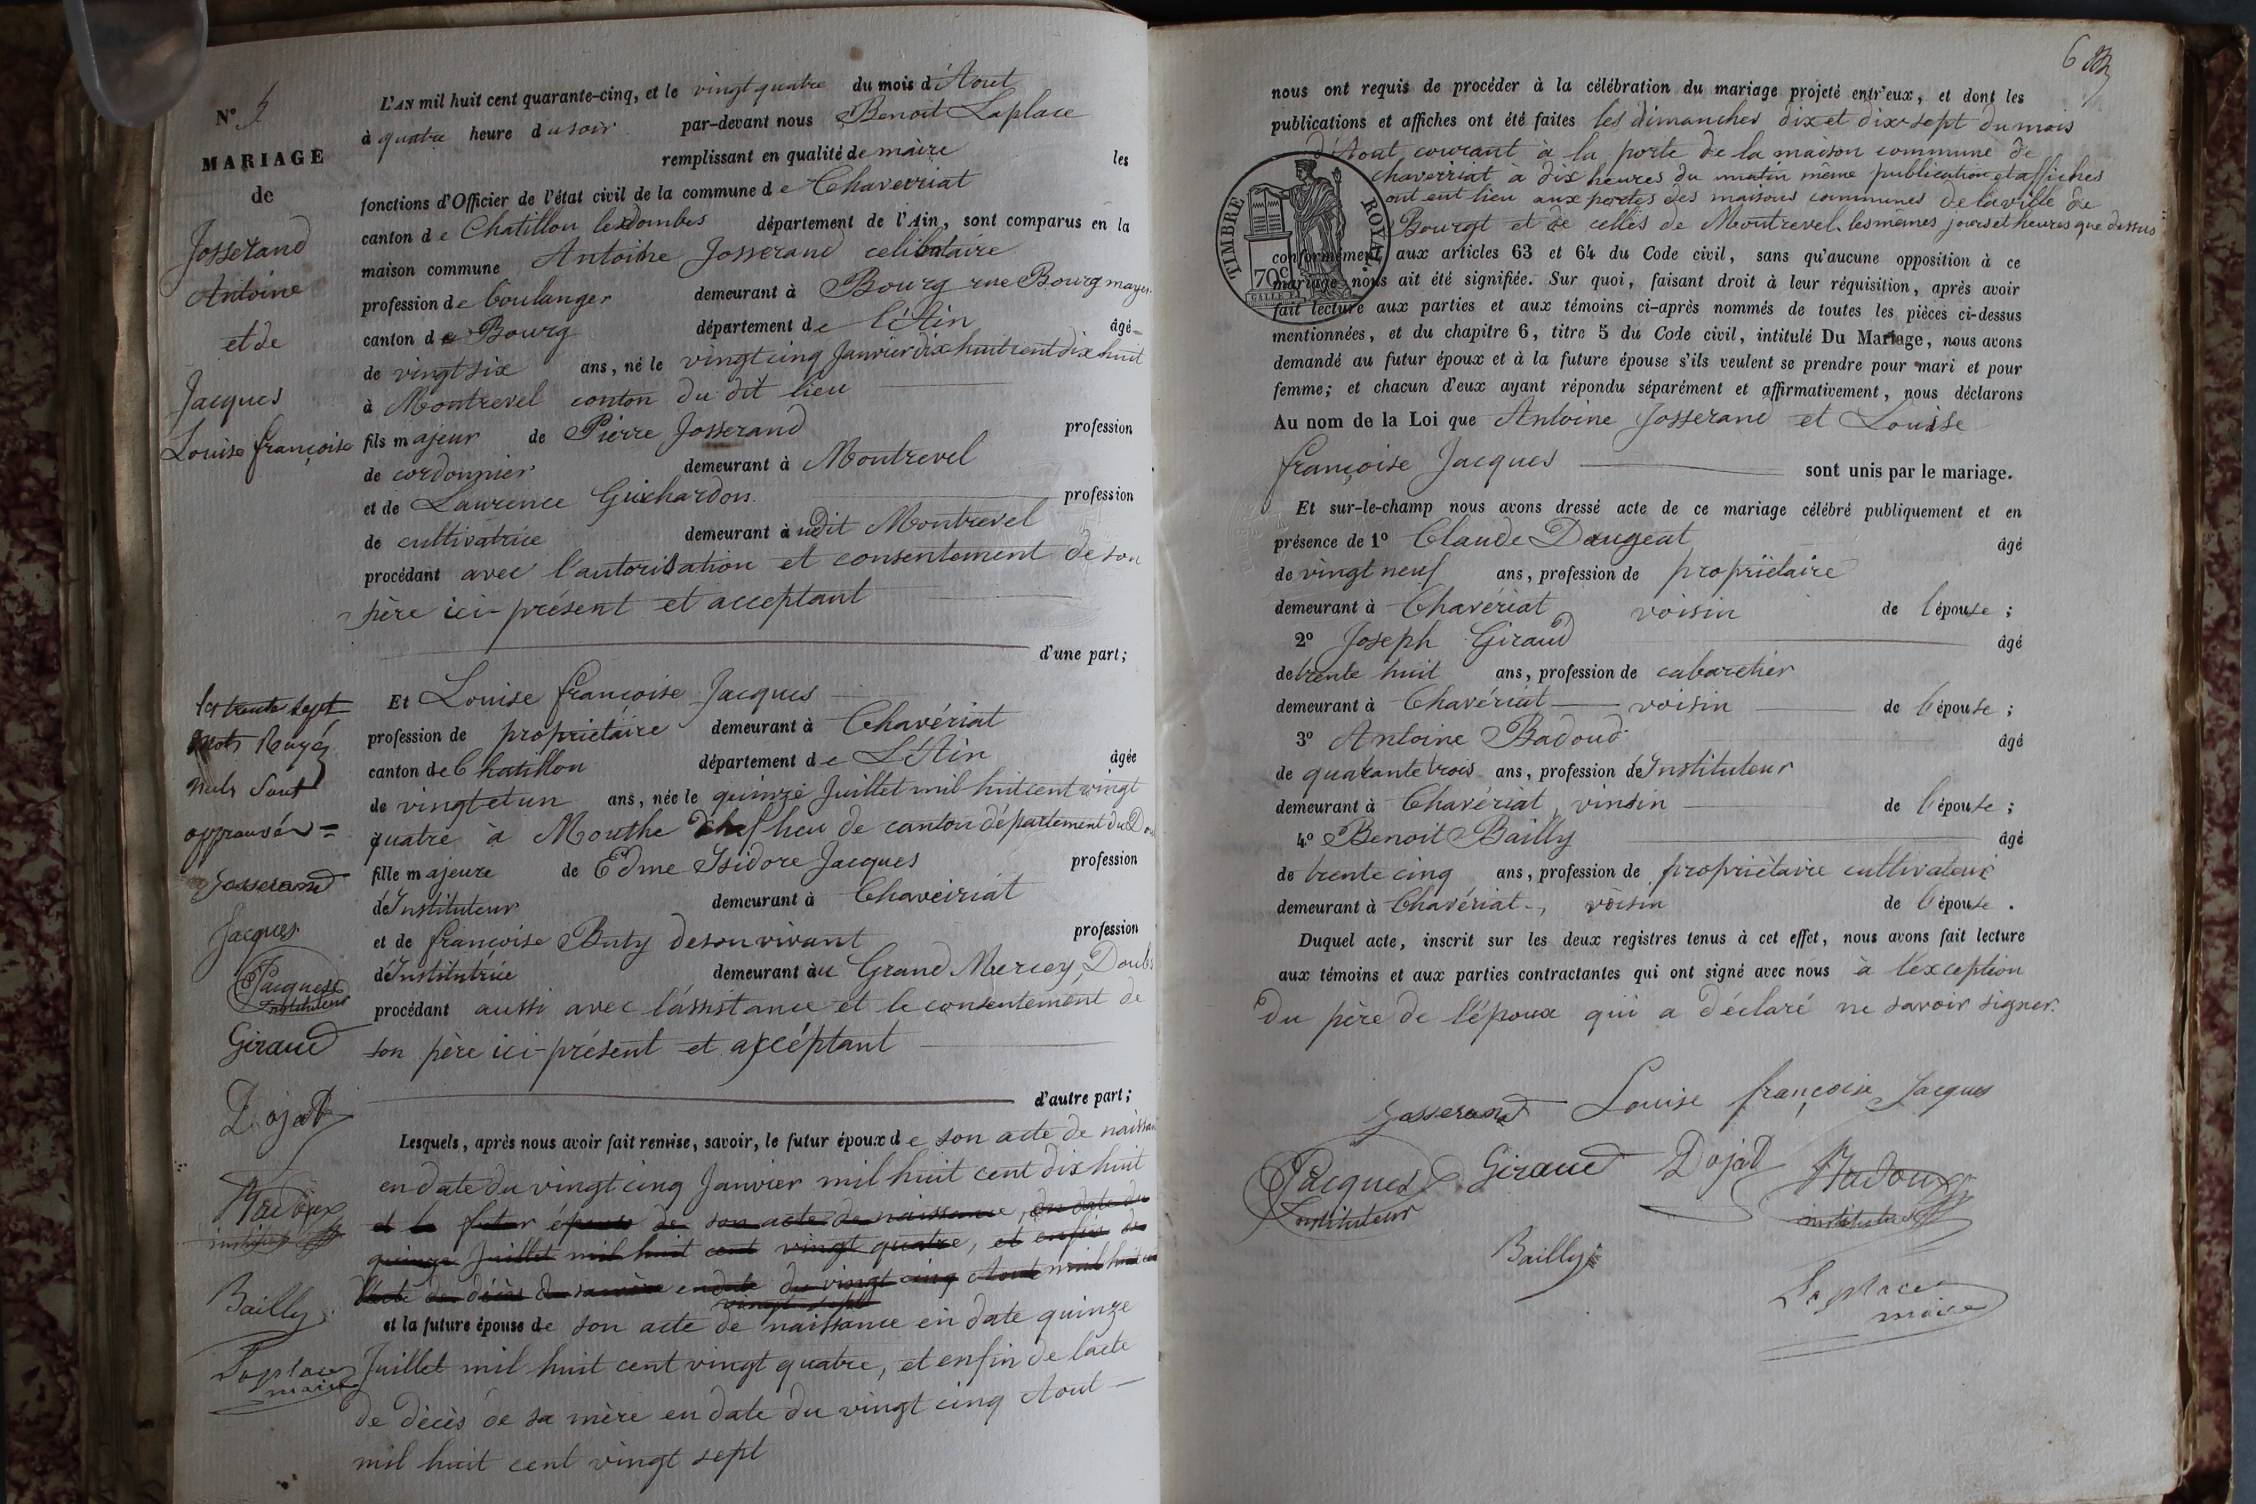 N° 5
MARIAGE
de
Josserand
Antoine
et de
Jacques
Louise françoise
L'AN mil huit cent quarante-cinq, et le vingt quatre du mois d'Aout
à quatre heure du soir par-devant nous Benoit Laplace
remplissant en qualité de maire les
fonctions d'Officier de l'état civil de la commune de Chaveyriat
canton de Chatillon les Dombes département de l'Ain, sont comparus en la
maison commune Antoine Josserand celibataire
profession de boulanger demeurant à Bourg rue Bourgmayer
canton de Bourg département de l'Ain âgé
de vingt six ans, né le vingt cinq Janvier dix huit cent dix huit
à Montrevel conton du dit lieu
fils majeur de Pierre Josserand profession
de cordonnier demeurant à Montrevel
et de Laurence Guichardon profession
de cultivatrice demeurant à udit Montrevel
procédant avec l'autorisation et consentement de son
père ici-présent et acceptant
d'une part;
Les trente sept
mots Rayés
nuls Sont
approuvés =
Josserand
Jacques
Jacques
Instituteur
Giraud
Dojat
Badoux
instituteur
Bailly
Laplace
maire
Et Louise françoise Jacques
profession de propriétaire demeurant à Chavériat
canton de Chatillon département de L'Ain âgée
de vingt et un ans, née le quinze Juillet mil huit cent vingt
quatre à Mouthe Chef lieu de canton département du Dou
fille majeure de Edme Isidore Jacques profession
de Instituteur demeurant à Chaveiriat
et de françoise Buty de son vivant profession
de Institutrice demeurant au Grand Mercey, Doubs
procédant aussi avec l'assistance et le consentement de
son père ici-présent et acceptant
d'autre part;
Lesquels, après nous avoir fait remise, savoir, le futur époux de son acte de naissan
en date du vingt cinq Janvier mil huit cent dix huit
et la futur épouse de son acte de naissance, en date du
quinze Juillet mil huit cent vingt quatre, et enfin de
l'acte de décès de sa mère en date du vingt cinq Aout mil huit cen
vingt sept
et la future épouse de son acte de naissance en date quinze
Juillet mil huit cent vingt quatre, et enfin de l'acte
de décès de sa mère en date du vingt cinq Aout
mil huit cent vingt sept
6
nous ont requis de procéder à la célébration du mariage projeté entr'eux, et dont les
publications et affiches ont été faites les dimanches dix et dix-sept du mois
d'Aout courant à la porte de la maison commune de
chaverriat à dix heures du matin même publication et affiches
ont eut lieu aux portes des maisons communes de la ville de
Bourgt et de celles de Montrevel. les mêmes jours et heures que dessus
TIMBRE ROYAL.
70c
conformément aux articles 63 et 64 du Code civil, sans qu'aucune opposition à ce
mariage nous ait été signifiée. Sur quoi, faisant droit à leur réquisition, après avoir
fait lecture aux parties et aux témoins ci-après nommés de toutes les pièces ci-dessus
mentionnées, et du chapitre 6, titre 5 du Code civil, intitulé Du Mariage, nous avons
demandé au futur époux et à la future épouse s'ils veulent se prendre pour mari et pour
femme; et chacun d'eux ayant répondu séparément et affirmativement, nous déclarons
Au nom de la Loi que Antoine Josserand et Louise
françoise Jacques sont unis par le mariage.
Et sur-le-champ nous avons dressé acte de ce mariage célébré publiquement et en
présence de 1° Claude Daugeat âgé
de vingt neuf ans, profession de propriétaire
demeurant à Chavériat voisin de l'épouse;
2° Joseph Giraud âgé
de trente huit ans, profession de cabaretier
demeurant à Chavériat voisin de l'épouse;
3° Antoine Badoud âgé
de quarante trois ans, profession de Instituteur
demeurant à Chavériat, vinsin de l'épouse;
4° Benoit Bailly âgé
de trente cinq ans, profession de propriétaire cultivateur
demeurant à Chavériat, voisin de l'épouse.
Duquel acte, inscrit sur les deux registres tenus à cet effet, nous avons fait lecture
aux témoins et aux parties contractantes qui ont signé avec nous à l'exception
du père de l'époux qui a déclaré ne savoir signer.
Josserand Louise françoise Jacques
Jacques Giraud Dojat Badoux
Instituteur instituteur
Bailly
Laplace
maire